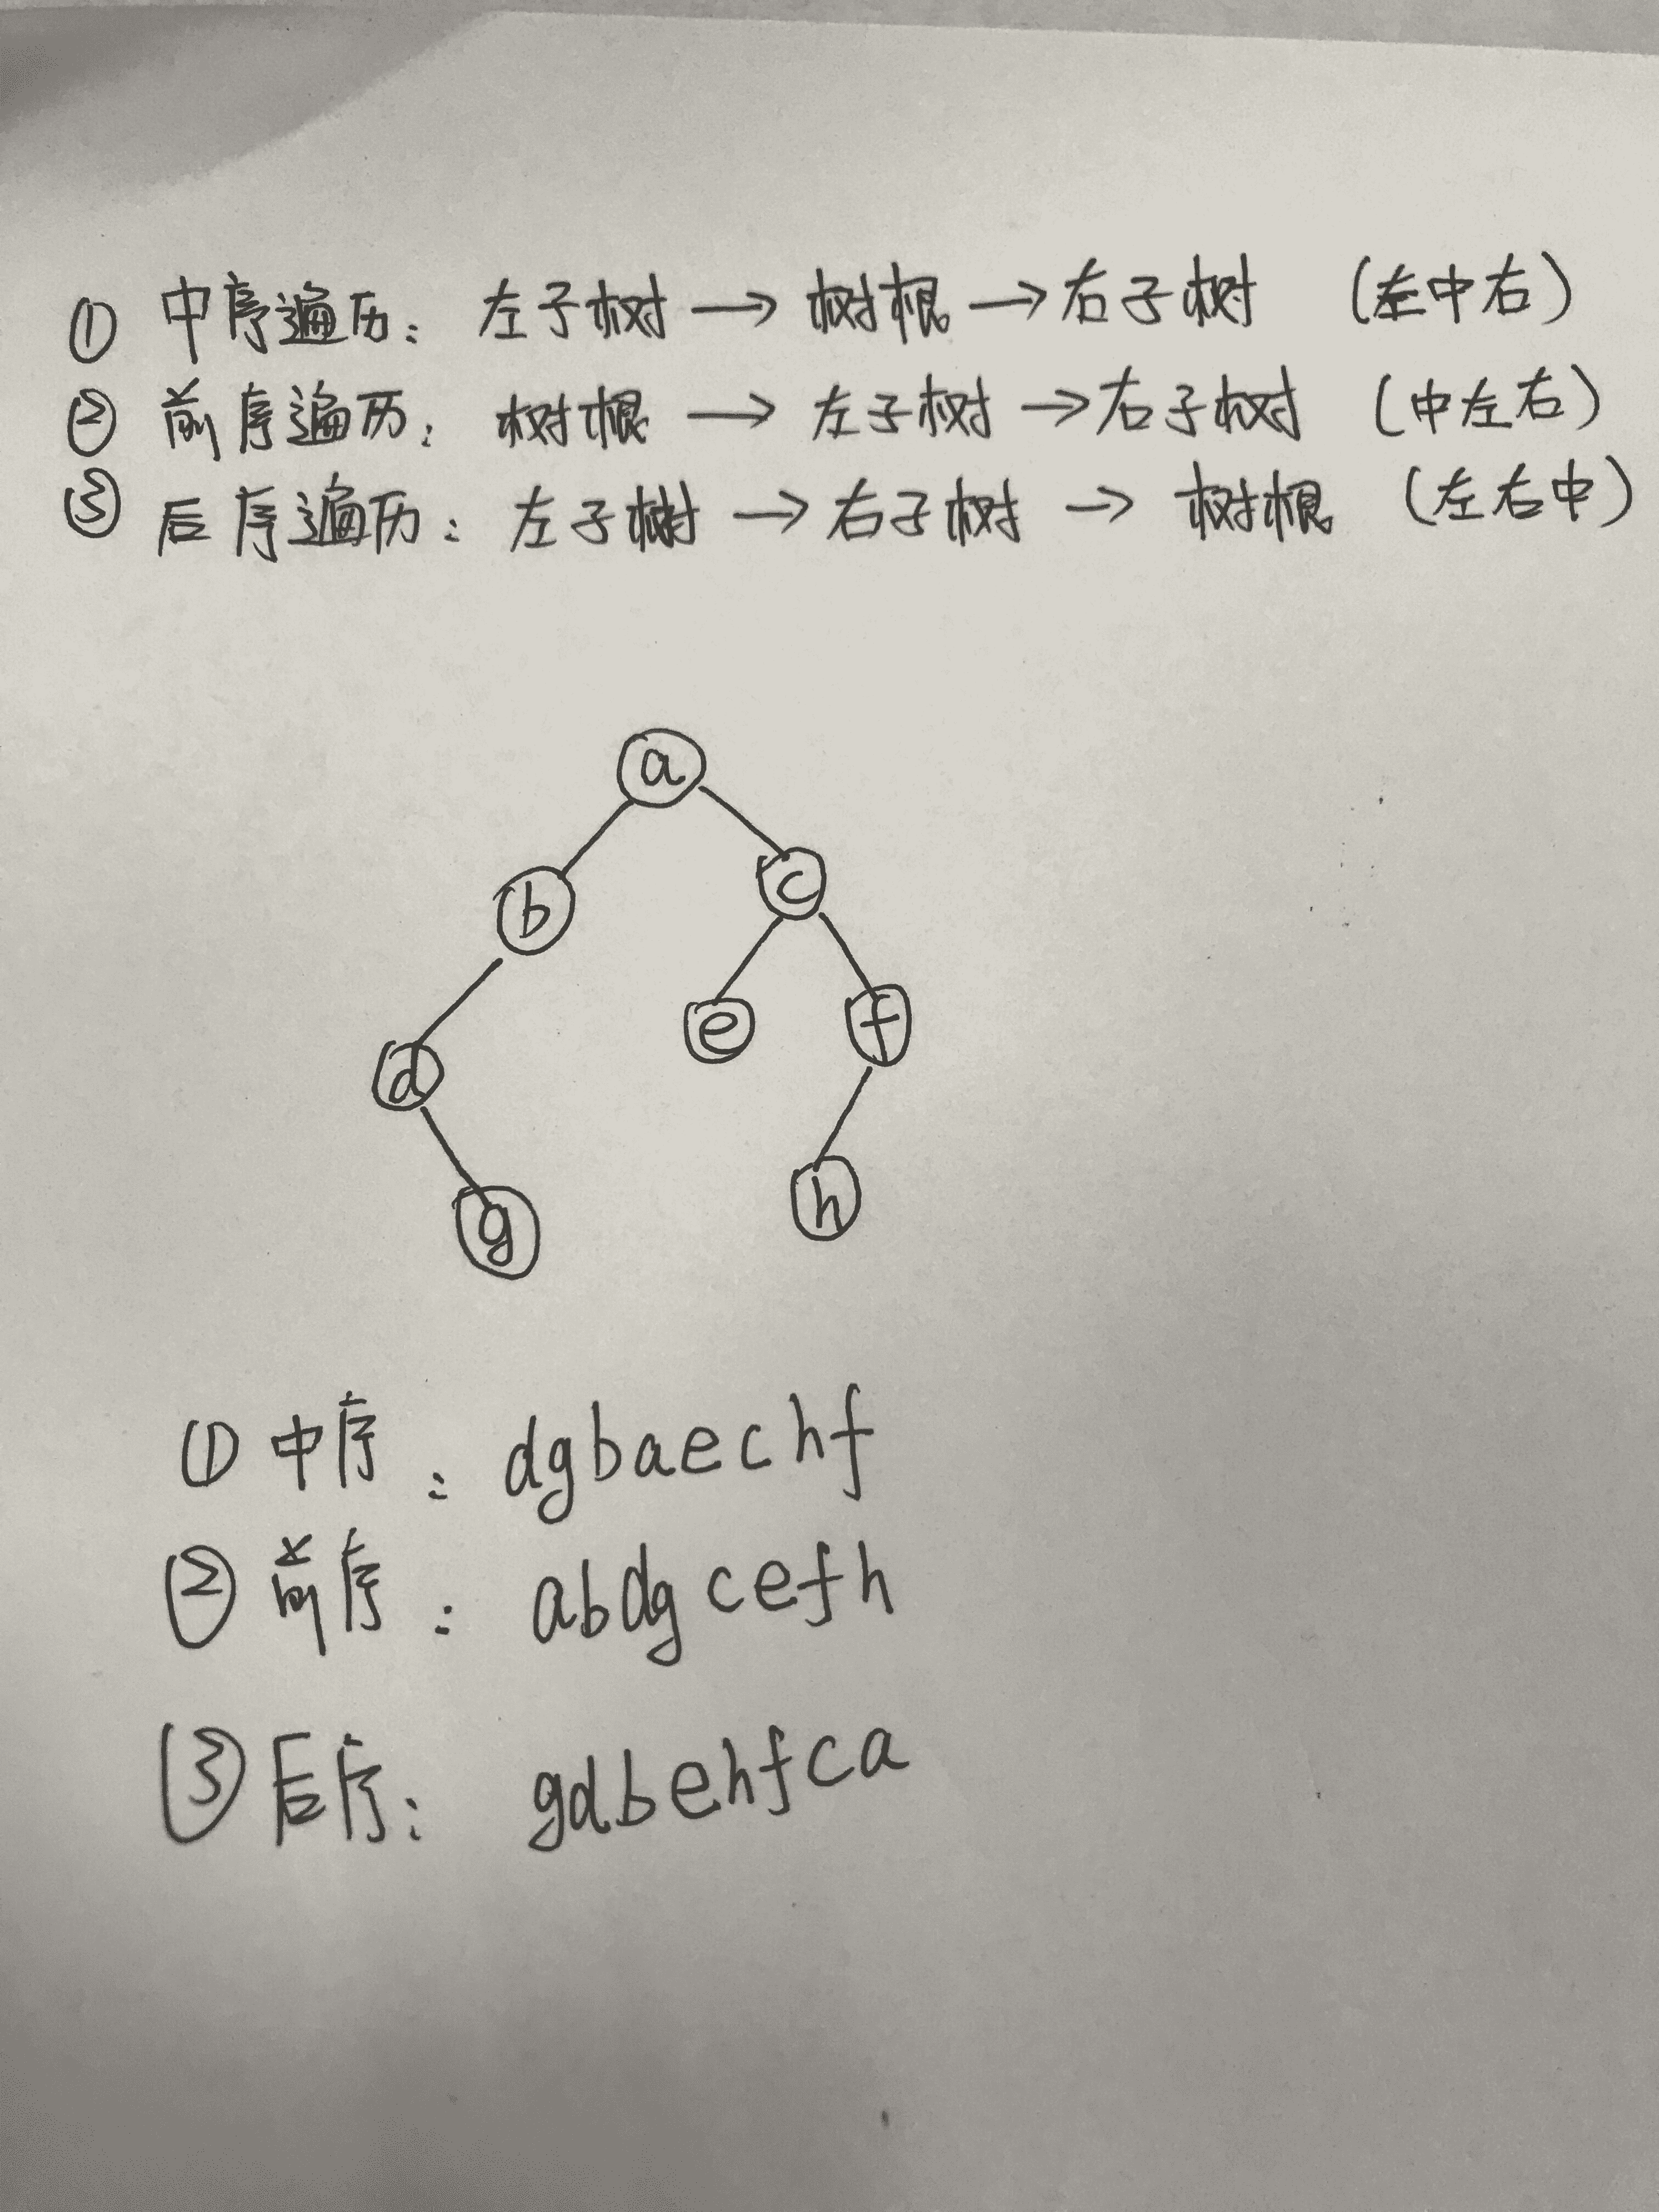 ① 中序遍历：左子树 → 树根 → 右子树 （左中右）
② 前序遍历：树根 → 左子树 → 右子树 （中左右）
③ 后序遍历：左子树 → 右子树 → 树根 （左右中）
a
b c
d e f
g h
① 中序：dgbaechf
② 前序：abdgcefh
③ 后序：gdbehfca